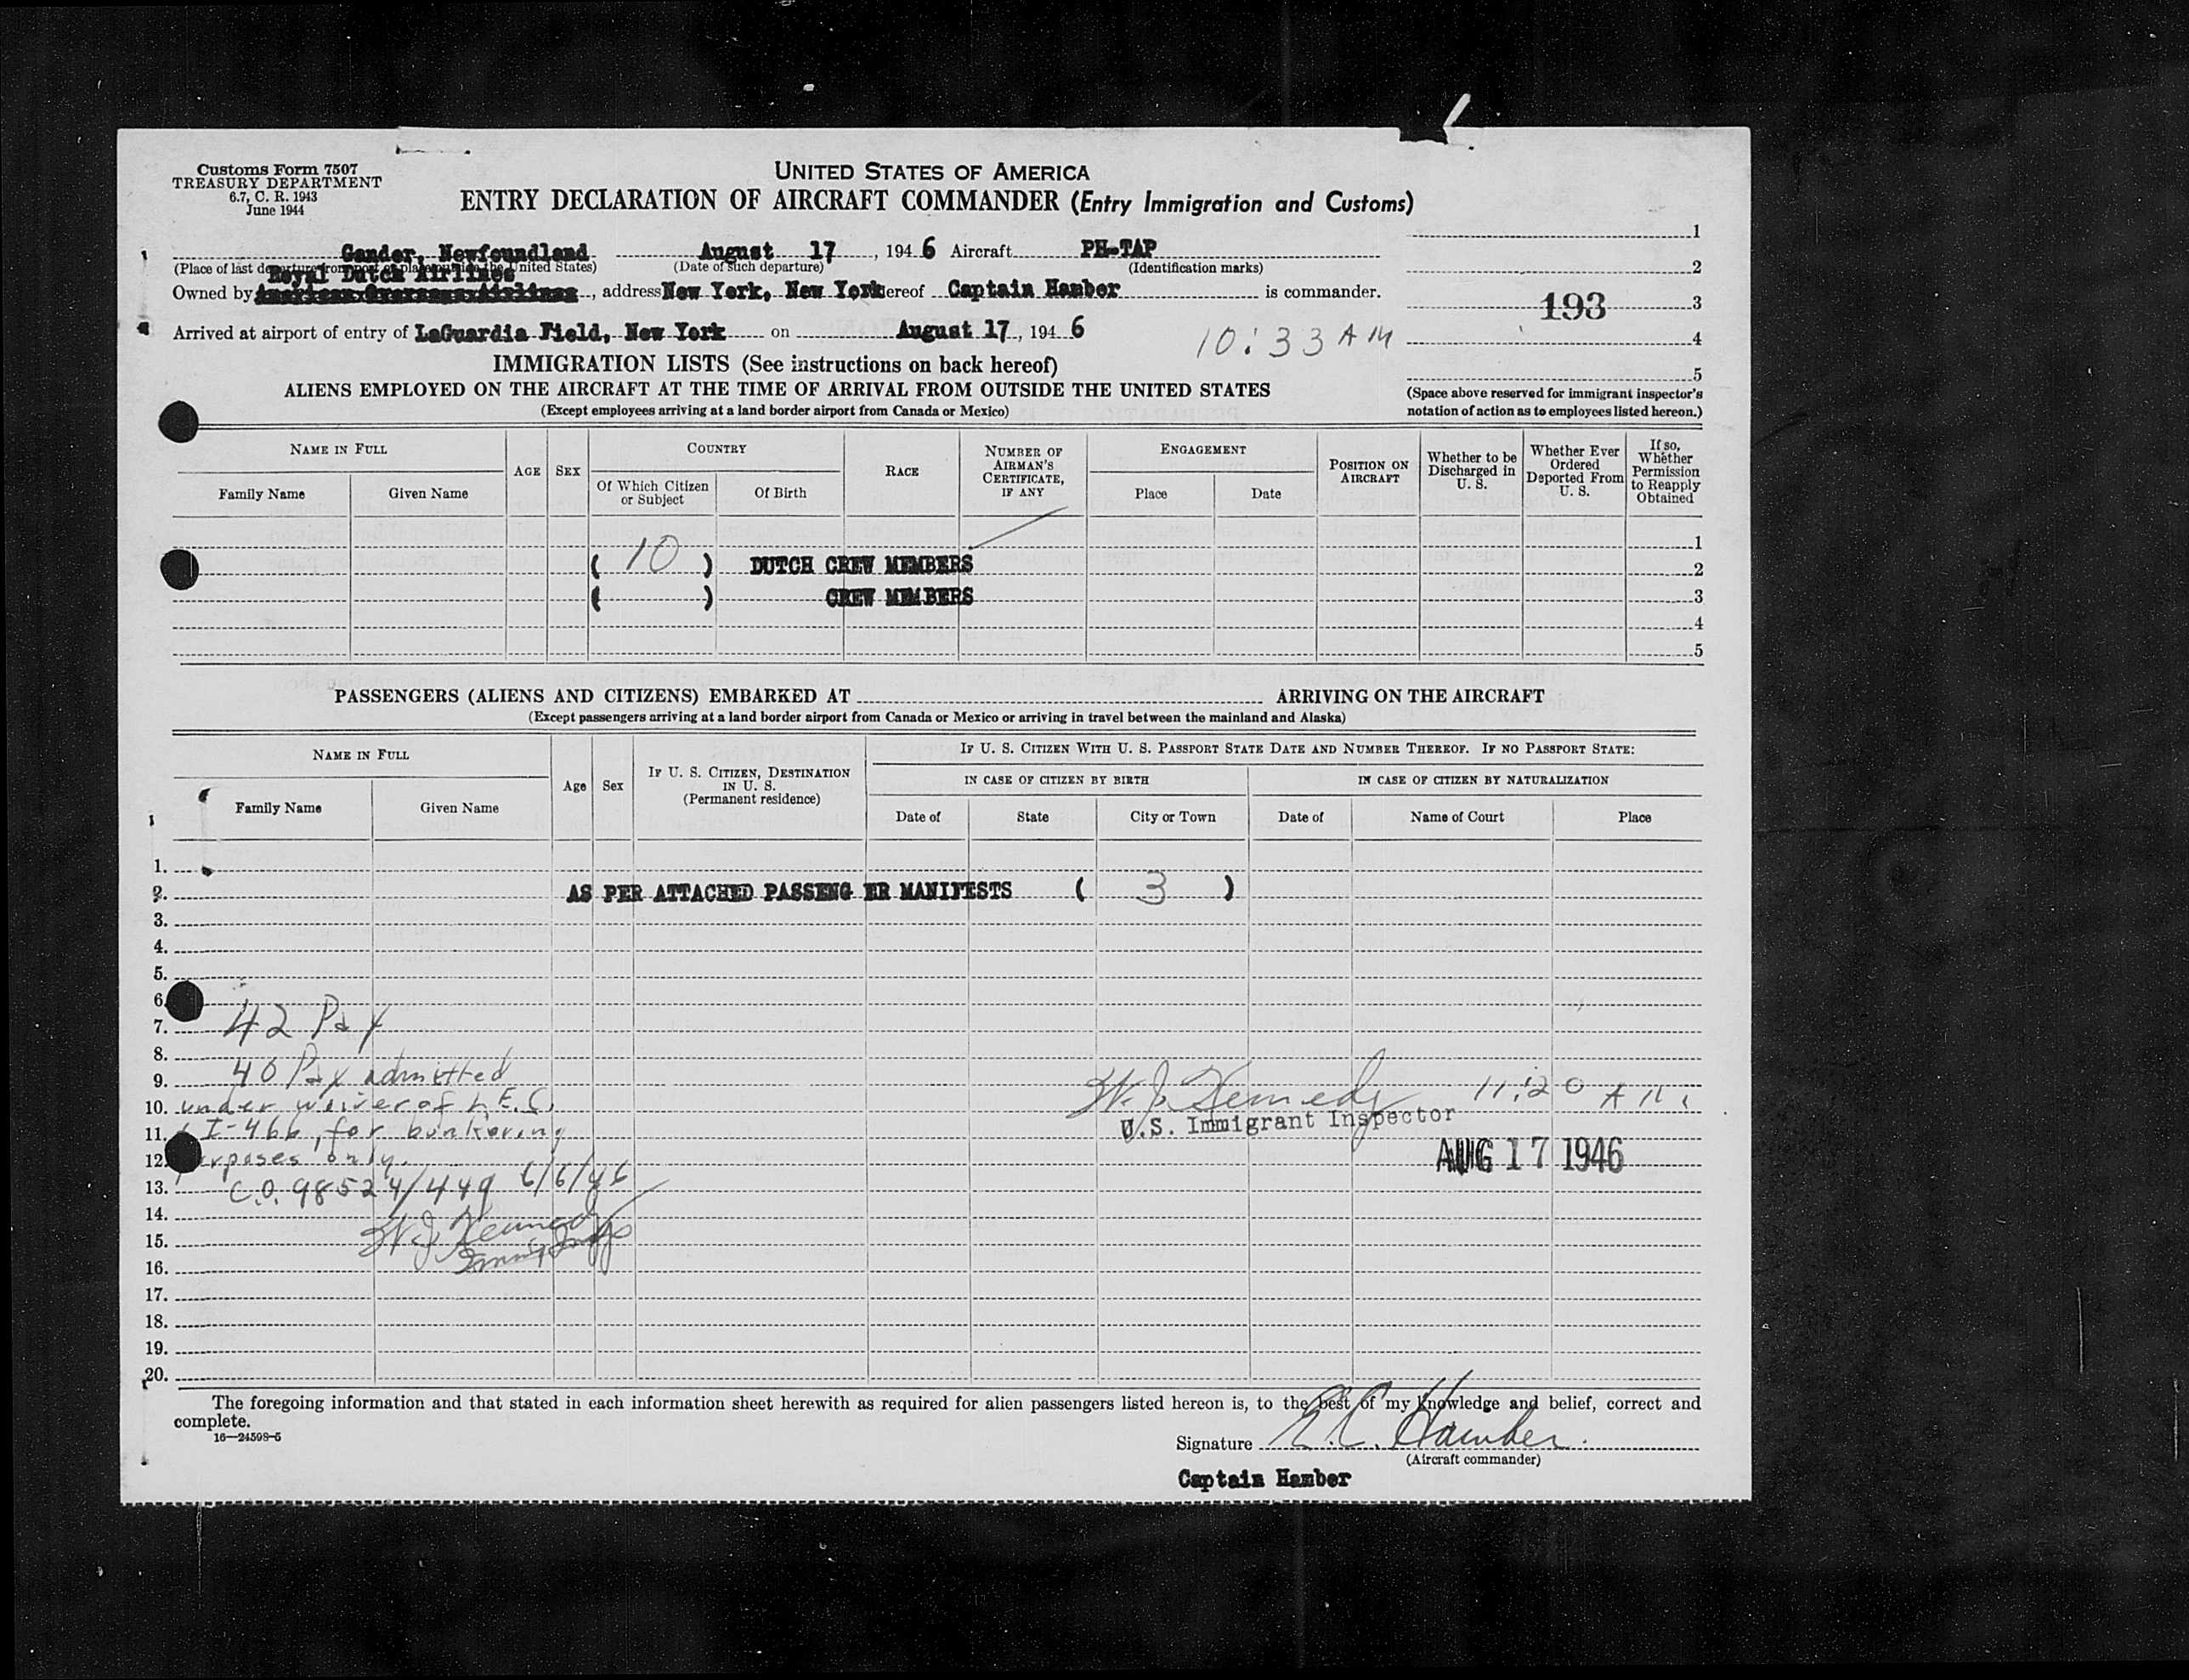 Customs Form 7507
TREASURY DEPARTMENT
6.7, C. R. 1943
June 1944
UNITED STATES OF AMERICA
ENTRY DECLARATION OF AIRCRAFT COMMANDER (Entry Immigration and Customs)
Gander, Newfoundland August 17, 1946 Aircraft PH-TAP
(Place of last departure from port or place outside the United States) (Date of such departure) (Identification marks)
Royal Dutch Airlines
Owned by American Overseas Airlines, address New York, New York hereof Captain Hamber is commander.
Arrived at airport of entry of LaGuardia Field, New York on August 17, 1946
10:33 AM
1
2
193 3
4
5
(Space above reserved for immigrant inspector's
notation of action as to employees listed hereon.)
IMMIGRATION LISTS (See instructions on back hereof)
ALIENS EMPLOYED ON THE AIRCRAFT AT THE TIME OF ARRIVAL FROM OUTSIDE THE UNITED STATES
(Except employees arriving at a land border airport from Canada or Mexico)
NAME IN FULL
Family Name Given Name
AGE SEX
COUNTRY
Of Which Citizen or Subject
Of Birth
RACE
NUMBER OF AIRMAN'S CERTIFICATE, IF ANY
ENGAGEMENT
Place Date
POSITION ON AIRCRAFT
Whether to be Discharged in U. S.
Whether Ever Ordered Deported From U. S.
If so, Whether Permission to Reapply Obtained
1
( 10 ) DUTCH CREW MEMBERS 2
( ) CREW MEMBERS 3
4
5
PASSENGERS (ALIENS AND CITIZENS) EMBARKED AT ARRIVING ON THE AIRCRAFT
(Except passengers arriving at a land border airport from Canada or Mexico or arriving in travel between the mainland and Alaska)
NAME IN FULL
Family Name Given Name
Age Sex
IF U. S. CITIZEN, DESTINATION IN U. S.
(Permanent residence)
IF U. S. CITIZEN WITH U. S. PASSPORT STATE DATE AND NUMBER THEREOF. IF NO PASSPORT STATE:
IN CASE OF CITIZEN BY BIRTH IN CASE OF CITIZEN BY NATURALIZATION
Date of State City or Town Date of Name of Court Place
1.
2. AS PER ATTACHED PASSENG ER MANIFESTS ( 3 )
3.
4.
5.
6.
7. 42 Pax
8.
9. 40 Pax admitted
10. under waiver of
11. I-466, for bunkering
12. purposes only.
13. C.O. 98524/449 6/6/46
14. W. J. Kennedy
15. Immig Insp
16.
17.
18.
19.
20.
W. J. Kennedy 11:20 AM
U.S. Immigrant Inspector
AUG 17 1946
The foregoing information and that stated in each information sheet herewith as required for alien passengers listed hereon is, to the best of my knowledge and belief, correct and
complete.
16—24598-5
Signature E.C. Hamber
(Aircraft commander)
Captain Hamber